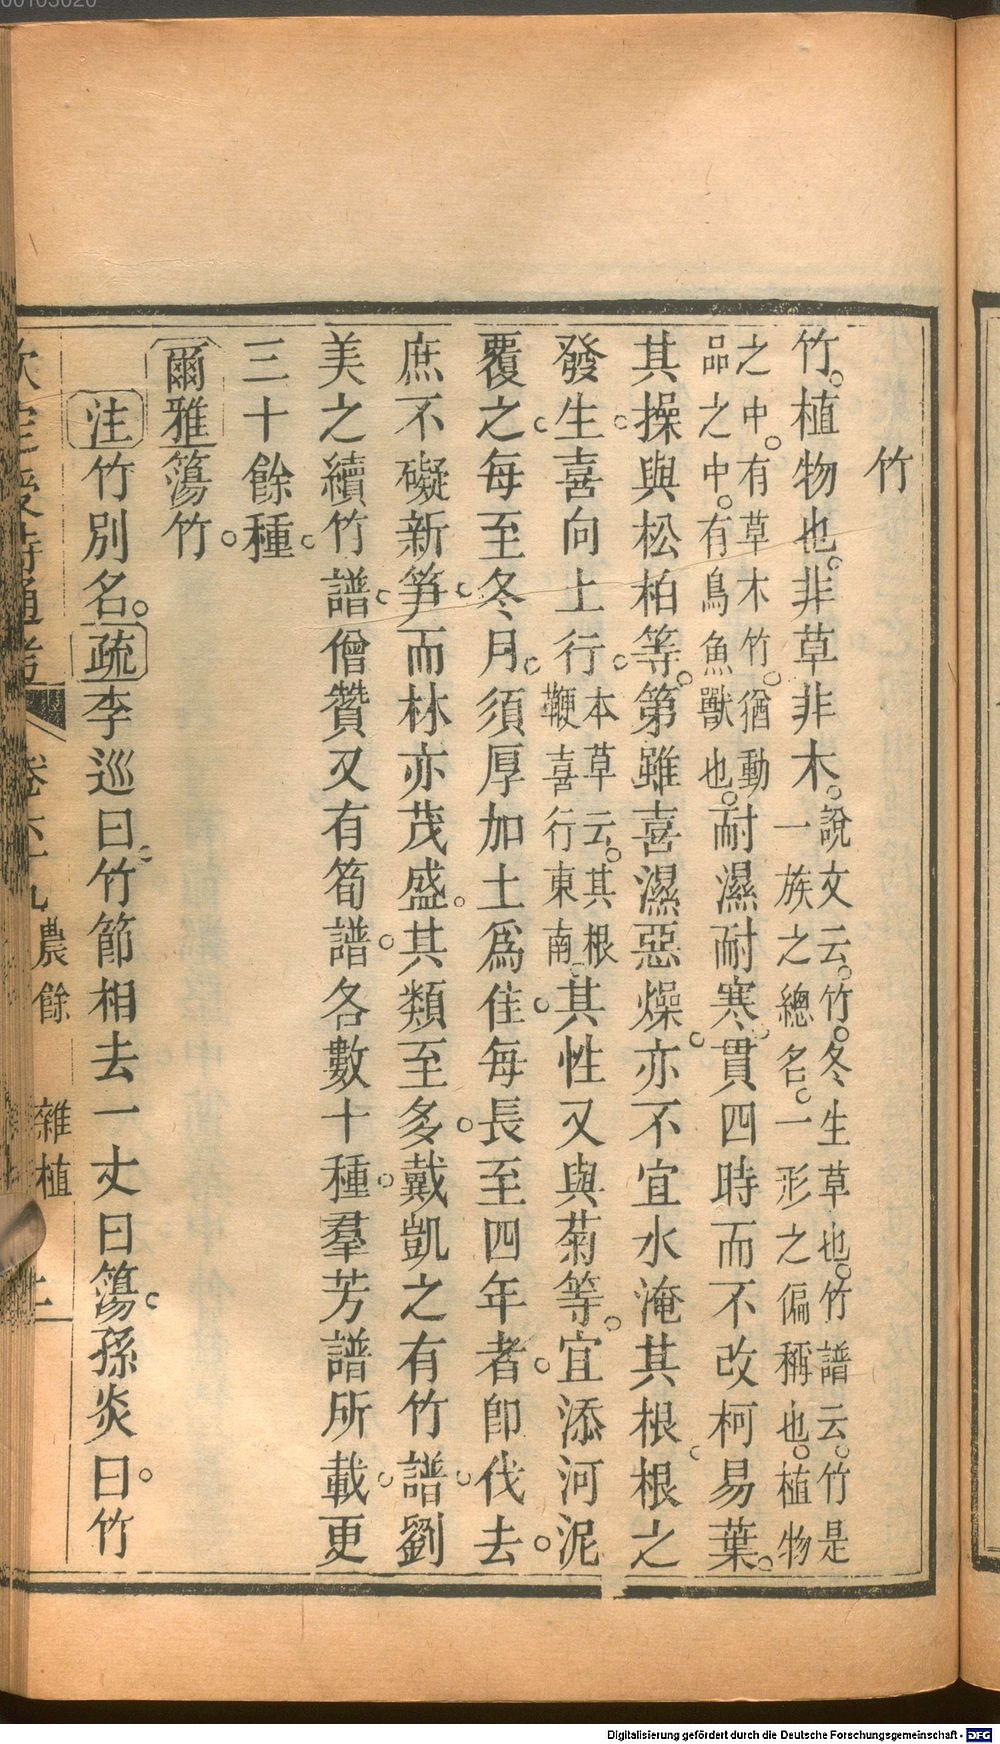 竹
竹。植物也。非草非木。說文云。竹。冬生草也。竹譜云。竹是一族之總名。一形之偏稱也。植物
之中。有草木竹。猶動品之中。有鳥魚獸也。耐濕耐寒。貫四時而不改柯易葉。
其操與松柏等。第雖喜濕惡燥。亦不宜水淹其根。根之
發生。喜向上行。本草云。其根鞭喜行東南。其性又與菊等。宜添河泥
覆之。每至冬月。須厚加土爲佳。每長至四年者。卽伐去。
庶不礙新笋。而林亦茂盛。其類至多。戴凱之有竹譜。劉
美之續竹譜。僧贊又有筍譜。各數十種。羣芳譜所載。更
三十餘種。
爾雅 簜竹。
注 竹別名。 疏 李巡曰。竹節相去一丈曰簜。孫炎曰。竹
欽定授時通考 卷六十九 農餘 雜植 上
00103020
Digitalisierung gefördert durch die Deutsche Forschungsgemeinschaft - DFG